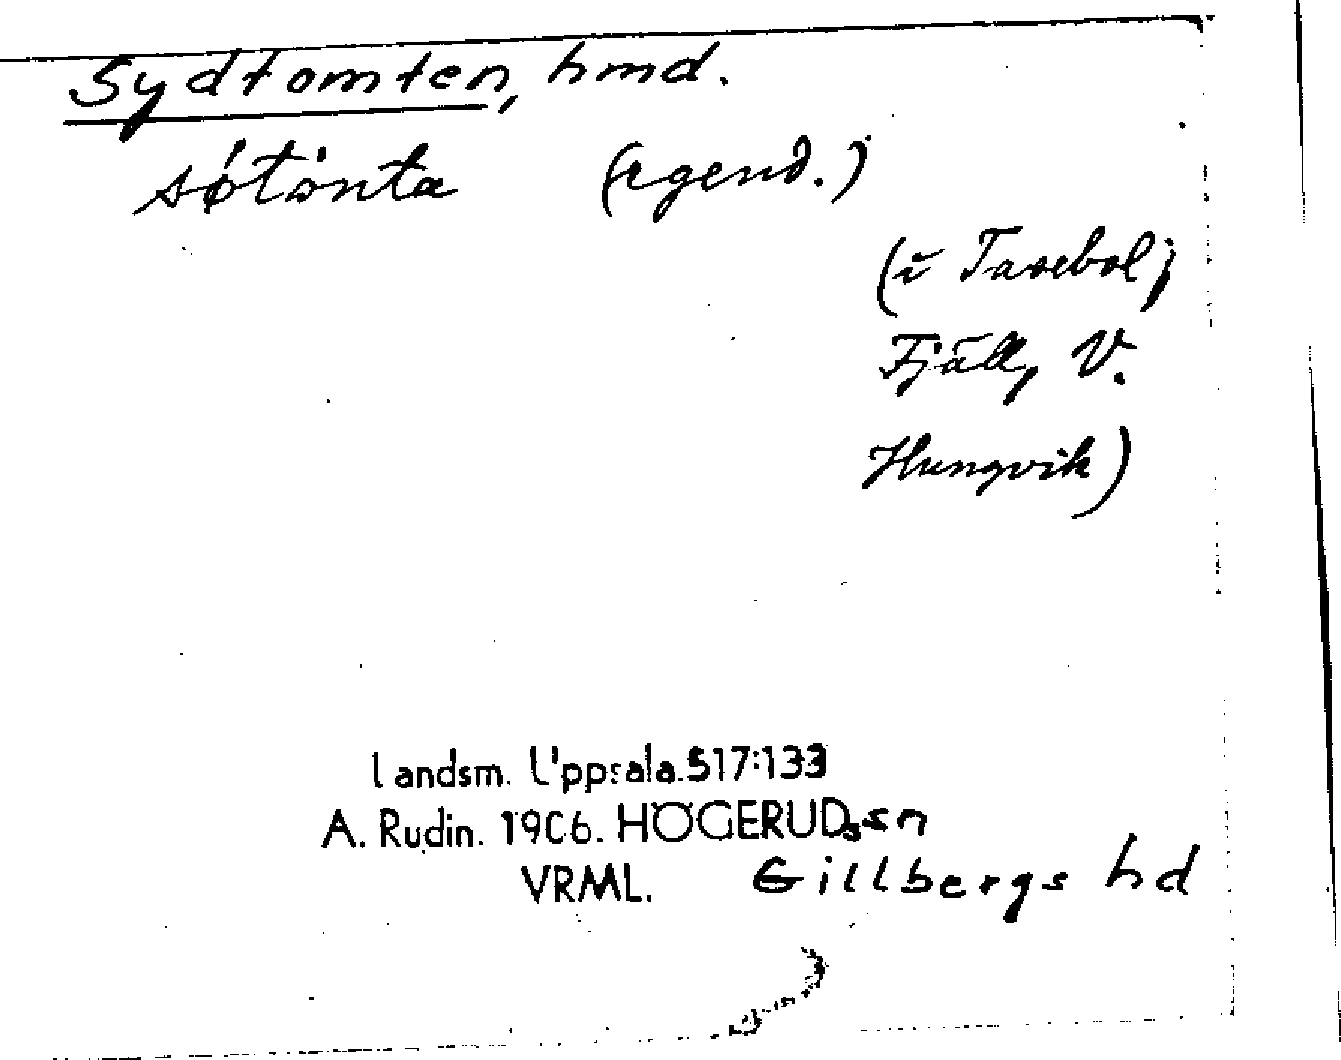 Sydtomten, hmd.
søtònta (egend.)
(i Tasebol;
Fjäll, V.
Hungvik)
Landsm. Uppsala. 517:133
A. Rudin. 1906. HÖGERUDs sn
VRML. Gillbergs hd